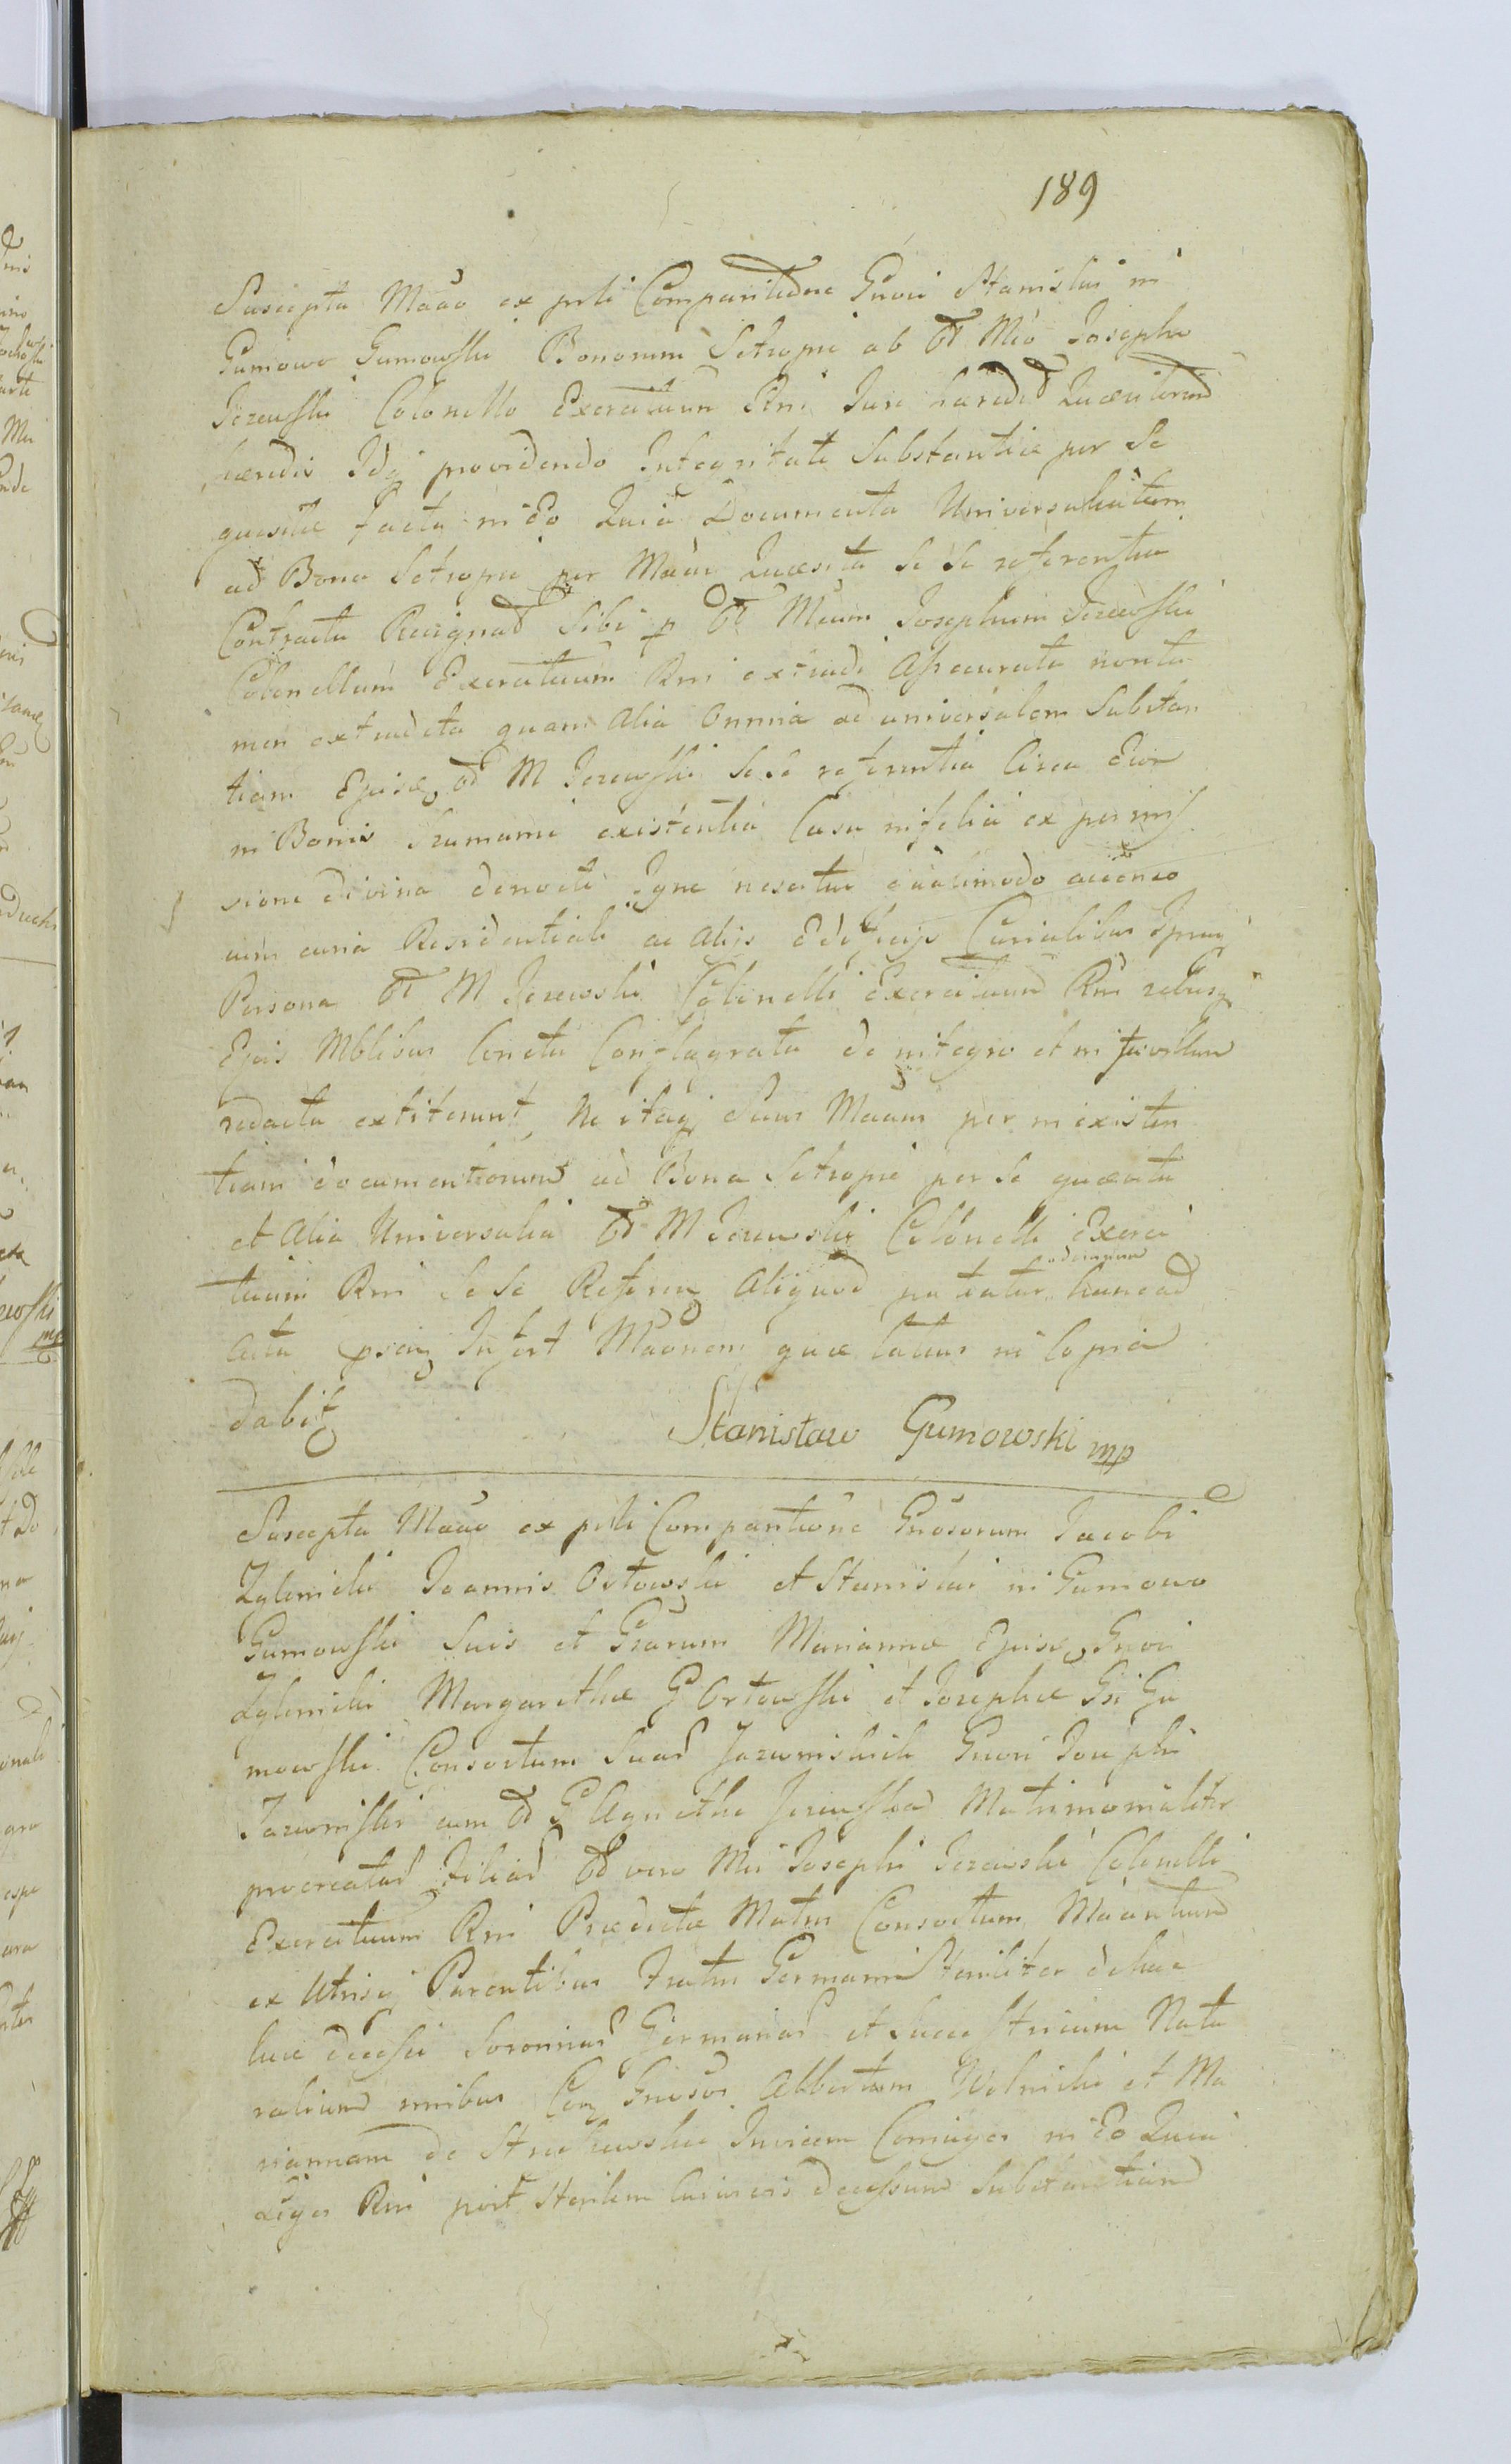 189
Suscepta Maāo ex psti Comparitione Gnosi Stanislai in
Gumowo Gumowski Bonorum Setropie ab od Mco Josepho
Jezewski Colonello Exercituum Rni Jure haered Quaesitorum
haeredis Idq providendo Integritati Substantiae per Se
quaesitae facta in eo Quia Documenta Universalia tum
ad Bona Setropie per Maān Quaesita se se referentia
Contractu Resignat Sibi p od Mcum Josephum Jezewski
Colonellum Exercituum Rni extradi Assecurata nonta
men extradita quam Alia Omnia ad universalem Substan
tiam Ejusd od M Jezewski Se Se referentia Circa Eum
in Bonis Szumanie existentia Casu infelici ex permis
sione divina de nocte Igne nescitur qualimodo accenso
cum curia Residentiali ac Alijs Edificijs Curialibus Ipsaq
Persona od M Jezewski Colonelli Exercituum Rni rebusq
Ejus Mblibus Cuncta Conflagrata de integro et in favillam
redacta extiterunt, Ne itaq idem Maāns per inexisten
tiam documentorum ad Bona Setropie per Se quaesita
et Alia Universalia od M Jezewski Colonelli Exerci
tuum Rni Se Se Referen Aliquod patiatur odemnum hancad
Acta psnia Infert Maōnem quae latius in Copia
dabit
Stanisław Gumowski mp
Suscepta Maāo ex psti Comparitione Gnosorum Jacobi
Zglenicki Joannis Ostowski et Stanislai in Gumowo
Gumowski Suis et Grarum Mariannae Ejusd Gnosi
Zglenicki Margarethae G Ortowski et Josephae Gsi Gu
mowski Consortum Suar Jazwinskich Gnosi Josephi
Jazwinski cum od G Agnetha Jezewska Matrimonialiter
procreatar Filiar od vero Mci Josephi Jezewski Colonelli
Exercituum Rni Praedictae Matris Consortum Maāntium
ex Utrisq Parentibus Fratris Germani Steriliter de hac
luce decessi Sororinar Germanar et Successtricium Natu
ralium nnibus Con Gnosos Albertum Wolnicki et Ma
riannam de Struszewskie Invicem Conjuges in Eo Quia
Leges Rni post Sterilem cujusvis decessum Substantiam